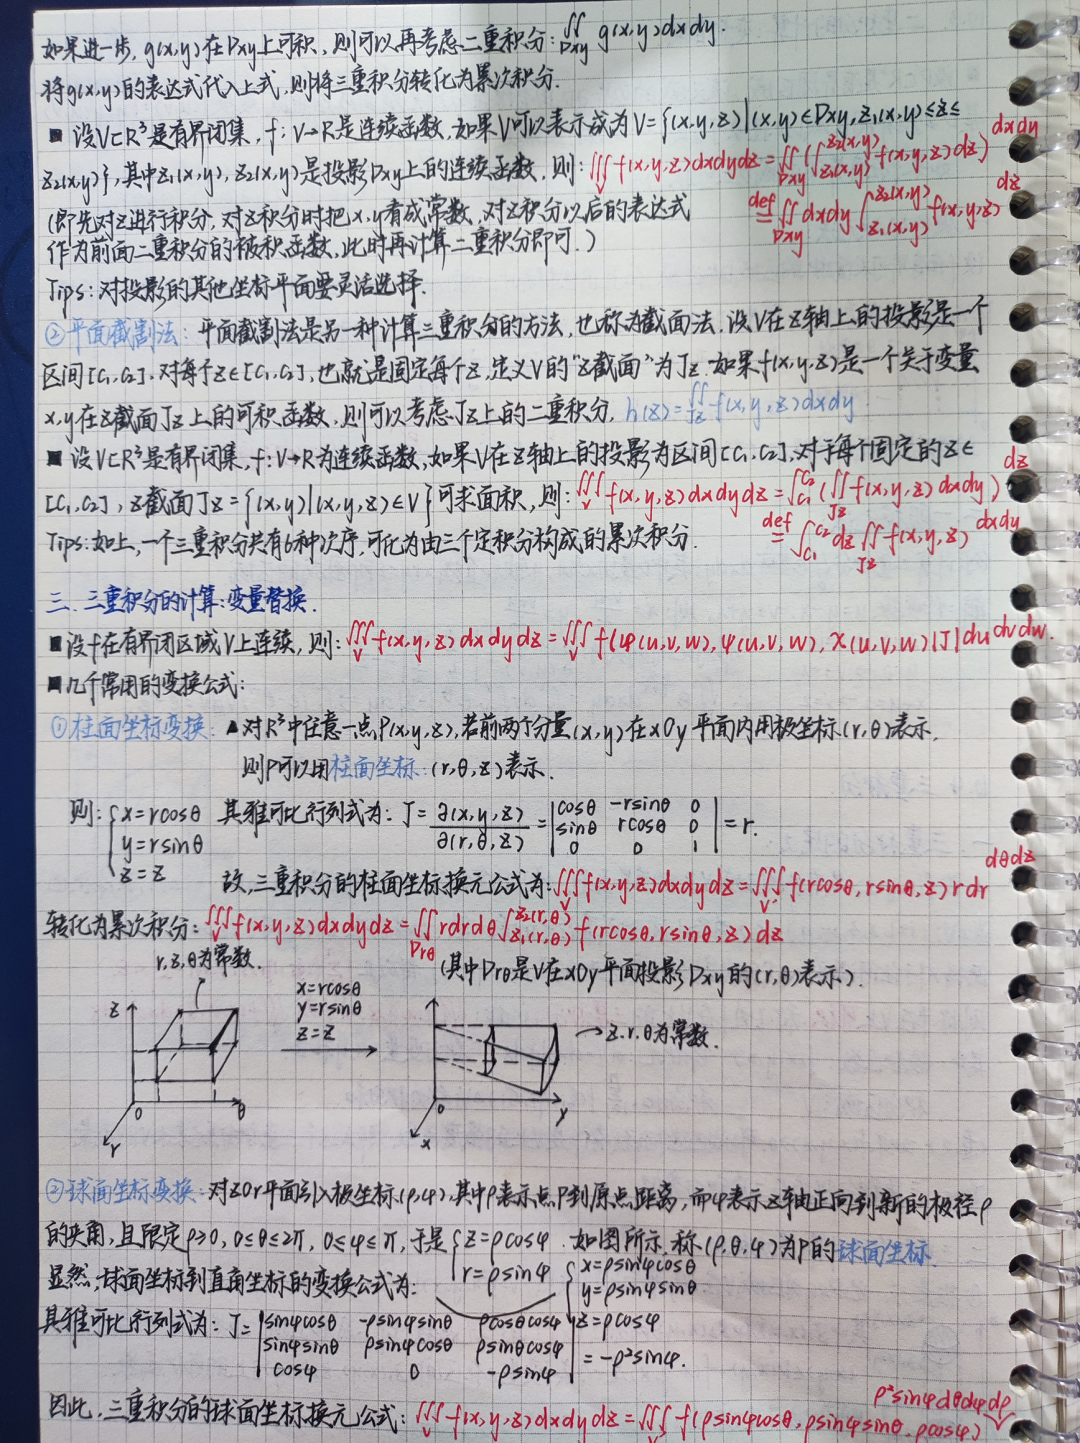 如果进一步, g(x,y)在Dxy上可积,则可以再考虑二重积分: ∬Dxy g(x,y)dxdy.
将g(x,y)的表达式代入上式,则将三重积分转化为累次积分.
■ 设V⊂R³是有界闭集, f: V→R是连续函数,如果V可以表示成为V={(x,y,z)|(x,y)∈Dxy, z₁(x,y)≤z≤
z₂(x,y)},其中z₁(x,y), z₂(x,y)是投影Dxy上的连续函数,则: ∭V f(x,y,z)dxdydz=∬Dxy(∫z₁(x,y)^z₂(x,y) f(x,y,z)dz)dxdy
(即先对z进行积分,对z积分时把x,y看成常数,对z积分以后的表达式 def= ∬Dxy dxdy∫z₁(x,y)^z₂(x,y) f(x,y,z)dz
作为前面二重积分的被积函数,此时再计算二重积分即可.)
Tips:对投影的其他坐标平面要灵活选择.
②平面截割法: 平面截割法是另一种计算三重积分的方法,也称为截面法.设V在z轴上的投影是一个
区间[C₁,C₂].对每个z∈[C₁,C₂],也就是固定每个z,定义V的“z截面”为Jz.如果f(x,y,z)是一个关于变量
x,y在z截面Jz上的可积函数,则可以考虑Jz上的二重积分, h(z)=∬Jz f(x,y,z)dxdy.
■ 设V⊂R³是有界闭集, f:V→R为连续函数,如果V在z轴上的投影为区间[C₁,C₂],对于每个固定的z∈
[C₁,C₂], z截面Jz={(x,y)|(x,y,z)∈V}可求面积,则: ∭V f(x,y,z)dxdydz=∫C₁^C₂(∬Jz f(x,y,z)dxdy)dz
Tips:如上,一个三重积分共有6种次序,可化为由三个定积分构成的累次积分. def= ∫C₁^C₂dz∬Jz f(x,y,z)dxdy
三.三重积分的计算:变量替换.
■设f在有界闭区域V上连续,则: ∭V f(x,y,z)dxdydz=∭V f(φ(u,v,w),ψ(u,v,w),χ(u,v,w)|J|dudvdw.
■几个常用的变换公式:
①柱面坐标变换: ▲对R³中任意一点P(x,y,z),若前两个分量(x,y)在xOy平面内用极坐标(r,θ)表示,
则P可以用柱面坐标:(r,θ,z)表示.
则:{x=rcosθ y=rsinθ z=z 其雅可比行列式为: J=∂(x,y,z)/∂(r,θ,z)=|cosθ -rsinθ 0; sinθ rcosθ 0; 0 0 1|=r.
故,三重积分的柱面坐标换元公式为:∭V f(x,y,z)dxdydz=∭V' f(rcosθ,rsinθ,z)rdrdθdz
转化为累次积分:∭V f(x,y,z)dxdydz=∬Drθ rdrdθ∫z₁(r,θ)^z₂(r,θ) f(rcosθ,rsinθ,z)dz
(其中Drθ是V在xOy平面投影Dxy的(r,θ)表示)
r,z,θ为常数.
x=rcosθ
y=rsinθ
z=z
→z.r.θ为常数.
z
0
θ
r
0
y
x
②球面坐标变换:对zOr平面引入极坐标(ρ,φ),其中ρ表示点P到原点距离,而φ表示z轴正向到新的极径ρ
的夹角,且限定ρ≥0, 0≤θ≤2π, 0≤φ≤π,于是{z=ρcosφ r=ρsinφ .如图所示.称(ρ,θ,φ)为P的球面坐标.
显然,球面坐标到直角坐标的变换公式为: {x=ρsinφcosθ y=ρsinφsinθ z=ρcosφ
其雅可比行列式为: J=|sinφcosθ -ρsinφsinθ ρcosθcosφ; sinφsinθ ρsinφcosθ ρsinθcosφ; cosφ 0 -ρsinφ|=-ρ²sinφ.
因此,三重积分的球面坐标换元公式:∭V f(x,y,z)dxdydz=∭V' f(ρsinφcosθ,ρsinφsinθ,ρcosφ)ρ²sinφdθdφdρ